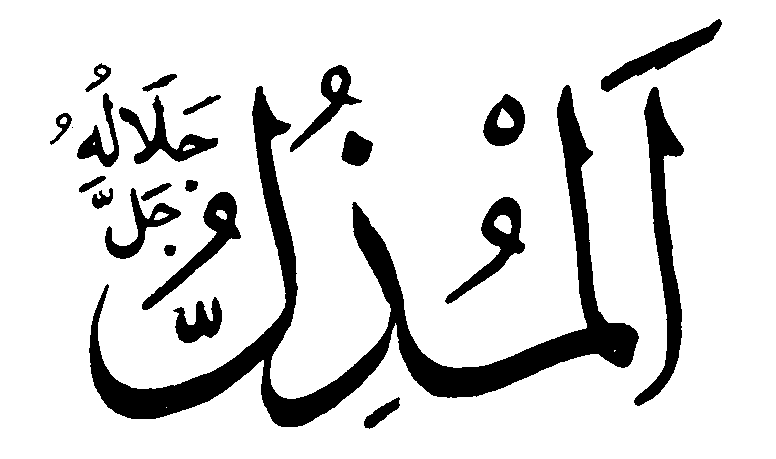 اَلْمُذِلُّ
جَلَّ جَلَالُهُ